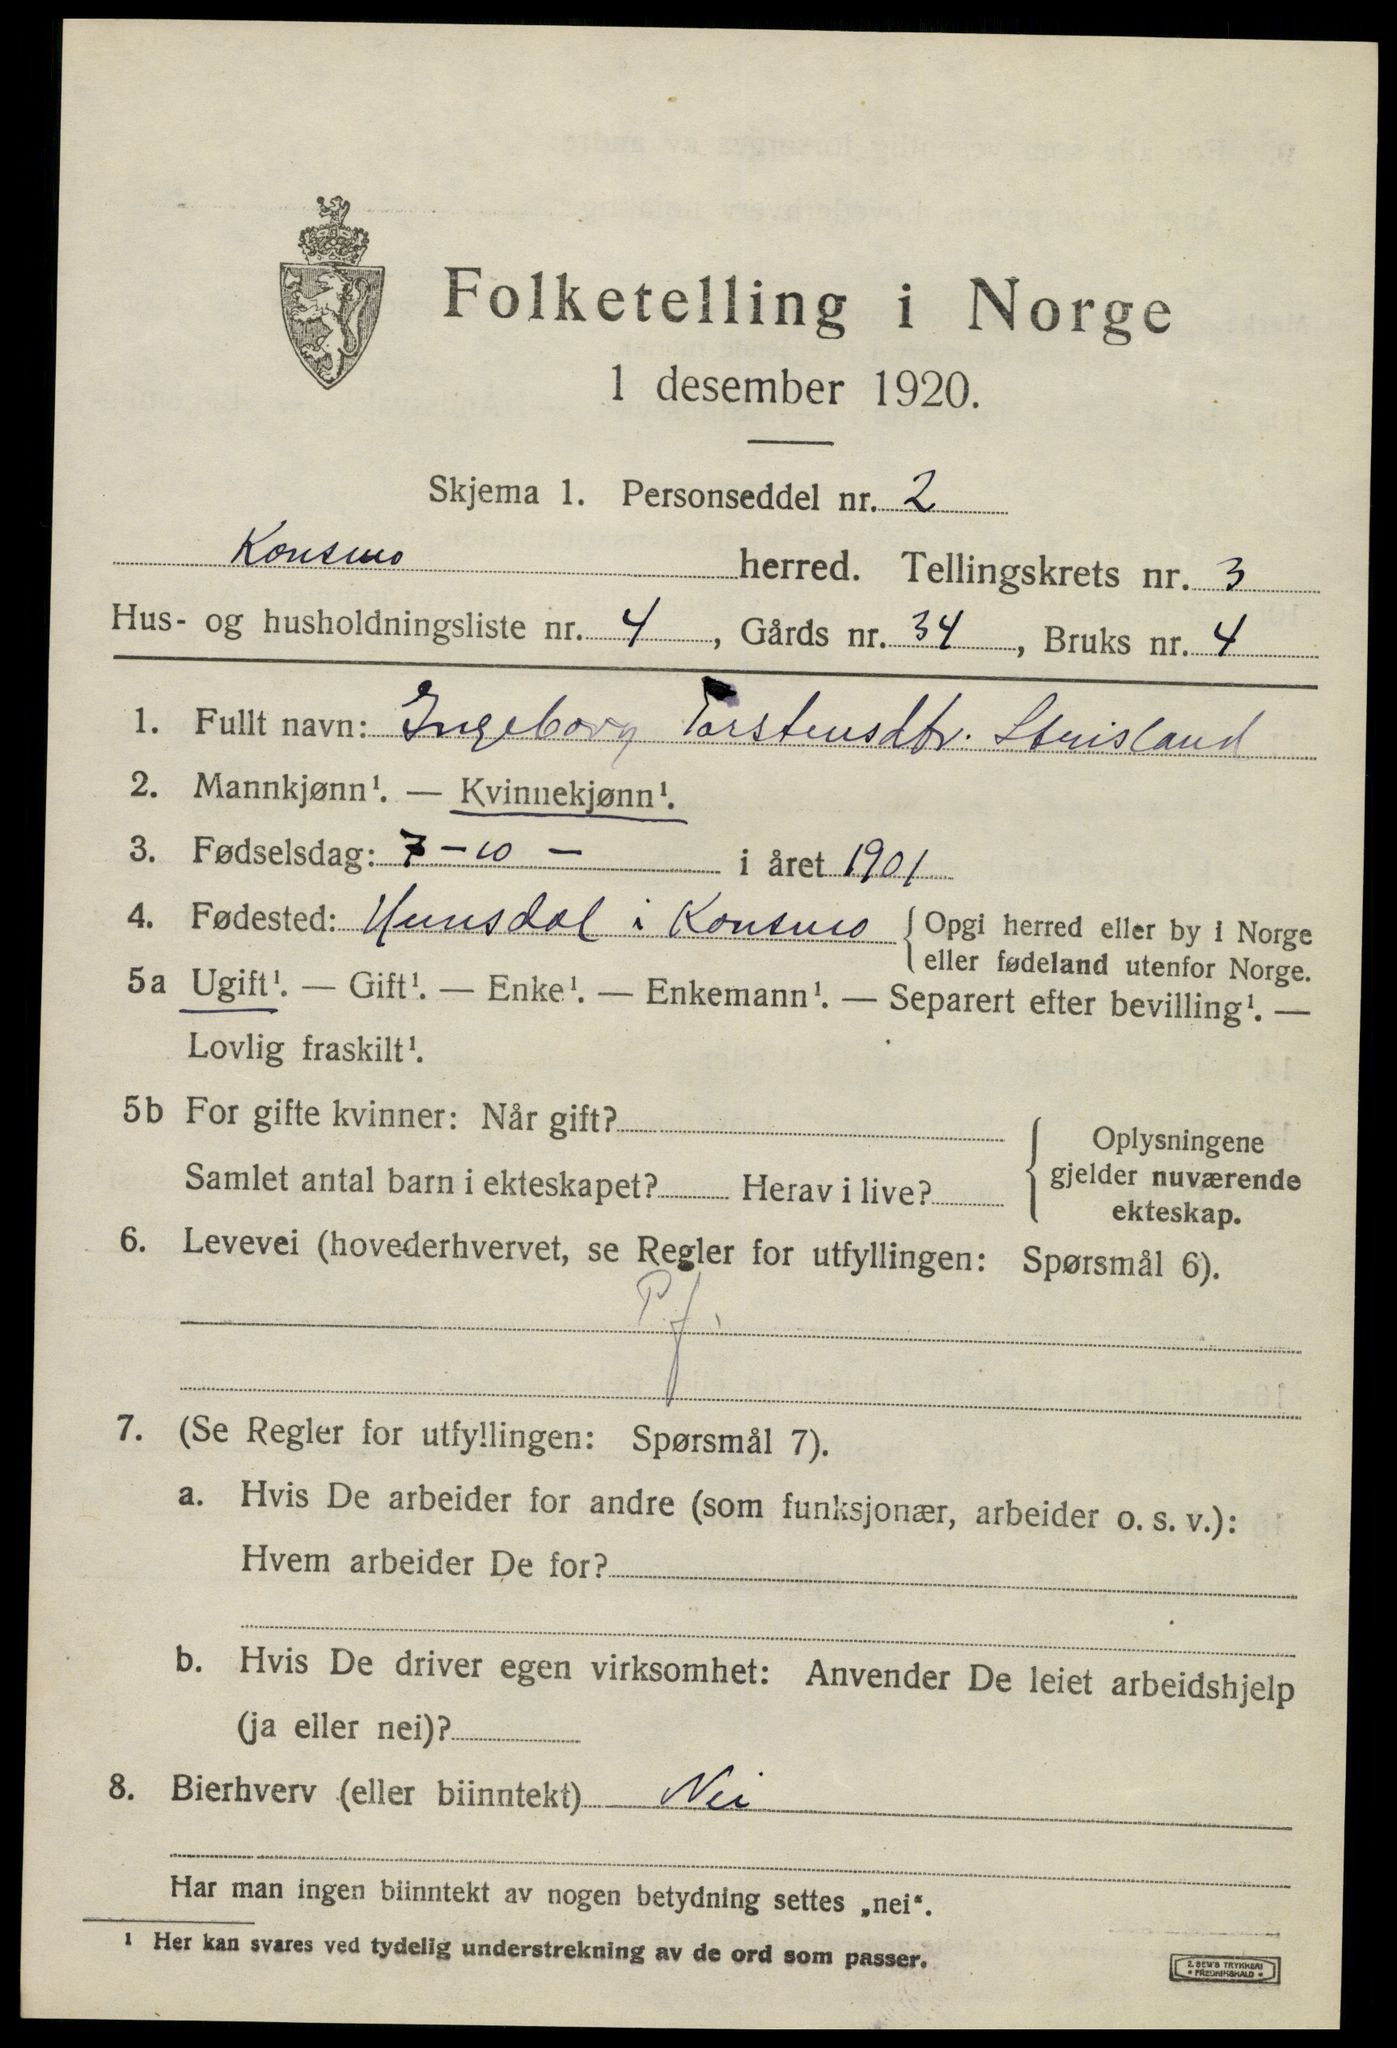 Folketelling i Norge
1 desember 1920.
Skjema 1. Personseddel nr. 2
Konsmo herred. Tellingskrets nr. 3
Hus- og husholdningsliste nr. 4, Gårds nr. 34, Bruks nr. 4
1. Fullt navn: Ingeborg Torstensdtr. Stuisland
2. Mannkjønn¹. — Kvinnekjønn¹.
3. Fødselsdag: 7-10 - i året 1901
4. Fødested: Hunsdal i Konsmo { Opgi herred eller by i Norge
eller fødeland utenfor Norge.
5a Ugift¹. — Gift¹. — Enke¹. — Enkemann¹. — Separert efter bevilling¹. —
Lovlig fraskilt¹.
5b For gifte kvinner: Når gift?
Samlet antal barn i ekteskapet? Herav i live?
{ Oplysningene
gjelder nuværende
ekteskap.
6. Levevei (hovederhvervet, se Regler for utfyllingen: Spørsmål 6).
P.f.
7. (Se Regler for utfyllingen: Spørsmål 7).
a. Hvis De arbeider for andre (som funksjonær, arbeider o. s. v.):
Hvem arbeider De for?
b. Hvis De driver egen virksomhet: Anvender De leiet arbeidshjelp
(ja eller nei)?
8. Bierhverv (eller biinntekt) Nei
Har man ingen biinntekt av nogen betydning settes „nei“.
¹ Her kan svares ved tydelig understrekning av de ord som passer.
E. SEM'S TRYKKERI
* FREDRIKSHALD *